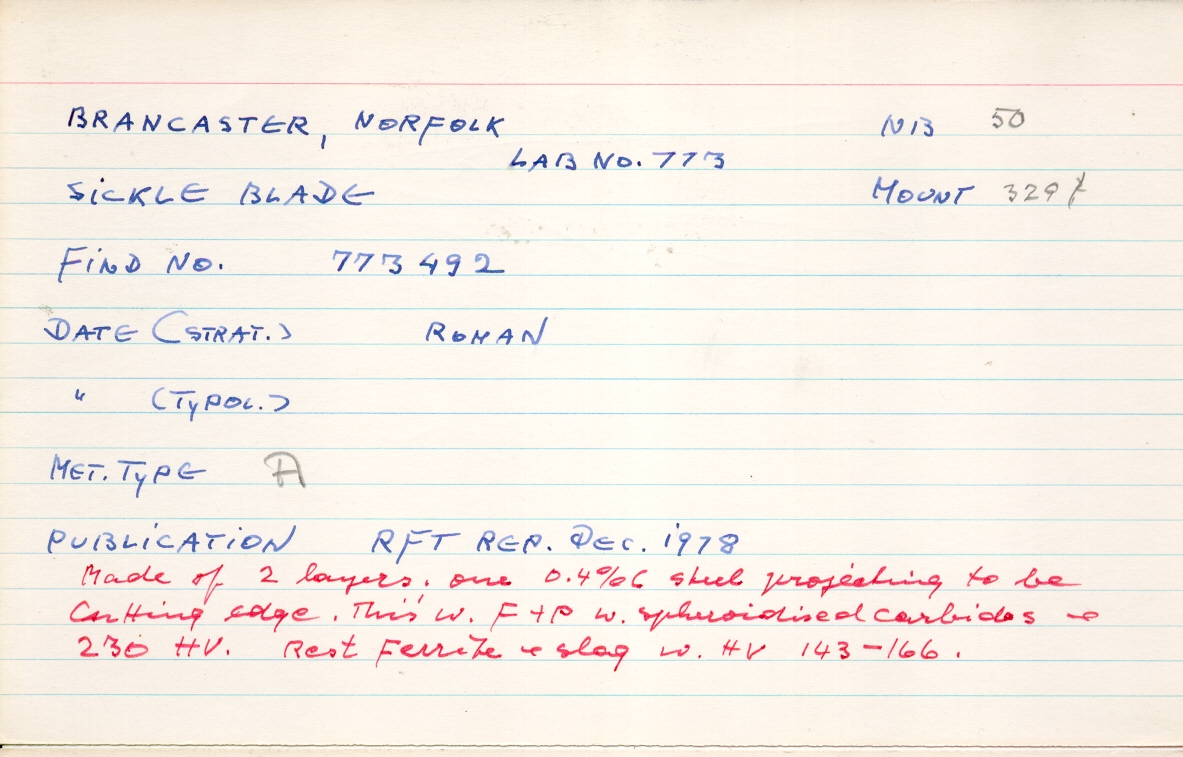 BRANCASTER, NORFOLK NB 50
LAB NO. 773
SICKLE BLADE MOUNT 329
FIND NO. 773492
DATE (STRAT.) ROMAN
" (TYPOL.)
MET. TYPE A
PUBLICATION RFT REP. DEC. 1978
Made of 2 layers, one 0.4%C steel projecting to be
Cutting edge. This w. F+P w. spheroidised carbides &
230 HV. Rest Ferrite & slag w. HV 143-166.